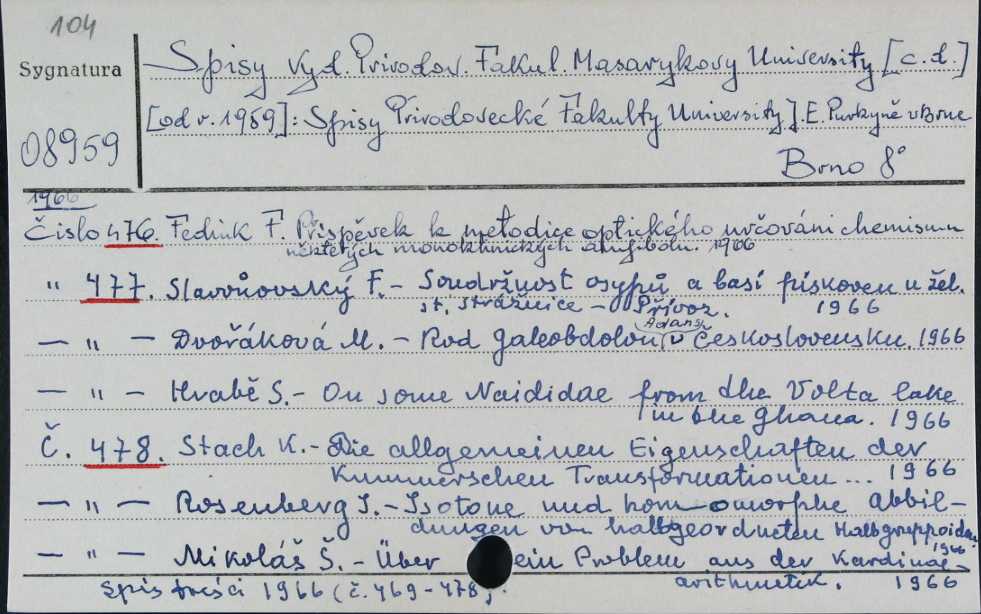 104
Sygnatura
08959
Spisy vyd. Přirodov. Fakul. Masarykovy University [c.d.]
[od r. 1959]: Spisy Přirodovecké Fakulty University J. E. Purkyně v Brne
Brno 8°
1966
Čislo 476. F. Přispěvek k metodice optického určováni chemismu
některých monoklinických amfibolu. 1966
" 477. Slavoňovský F. - Soudržnost osypů a basí pískoven u žel.
st. Strážnice - Přívoz. 1966
— " — Dvořáková M. - Rod Galeobdolon Adans. v Československu. 1966
— " — Hrabě S. - On some Naididae from the Volta lake
in the Ghana. 1966
Č. 478. Stach K. - Die allgemeinen Eigenschaften der
Kummerschen Transformationen ... 1966
— " — Rosenberg I. - Isotone und homomorphe Abbil-
dungen von halbgeordneten Halbgruppoiden
1966
— " — Mikoláš Š. - Über ein Problem aus der Kardinal-
arithmetik. 1966
Spis treści 1966 (č. 469-478)